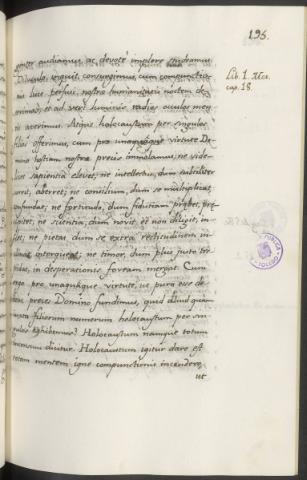 195.
genter audiamus, ac devotè implere studeamus.
Diluculo, inquit, consurgimus, cum compunctio-
nis luce perfusi, nostrae humanitatis noctem de-
serimus, et ad veri luminis radios oculos men-
tis aperimus. Atque holocaustum per singulos
filios offerimus, cum pro unaquaque virtute Do-
mino hostiam nostrae precis immolamus; ne vide-
licet sapientia elevet; ne intellectus, dum subtiliter
currit, aberret; ne consilium, dum se multiplicat,
confundat; ne fortitudo, dum fiduciam praebet, prae-
cipitet; ne scientia, dum novit, et non diligit, in-
flet; ne pietas dum se extra rectitudinem in-
clinat, intorqueat; ne timor, dum plus justo tre-
pidat, in desperationis foveam mergat. Cum
ergo pro unaquaque virtute, ut pura esse de-
beat, preces Domino fundimus, quid aliud quam
juxta filiorum numerum holocaustum per sin-
gulos exhibemus? Holocaustum namque totum
incensum dicitur. Holocaustum igitur dare est
totam mentem igne compunctionis incendere,
ut
Lib. 1. Mor.
cap. 18.